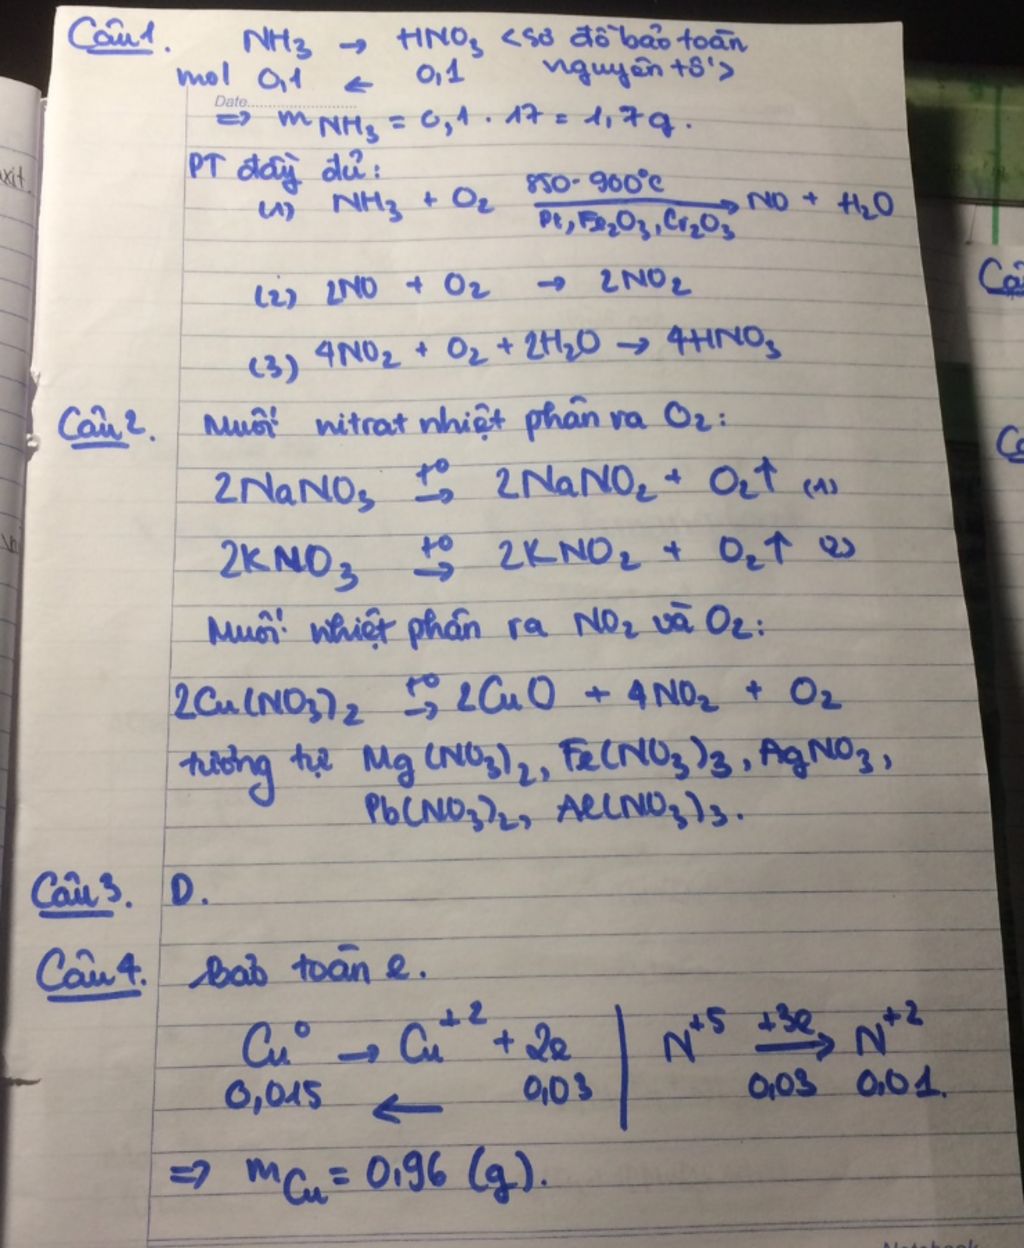 Câu 1. NH3 → HNO3 <sơ đồ bảo toàn
mol 0,1 ← 0,1 nguyên tố>
Date
⇒ mNH3 = 0,1 . 17 = 1,7g.
PT đầy đủ:
(1) NH3 + O2 850-900°C Pt, Fe2O3, Cr2O3 → NO + H2O
(2) 2NO + O2 → 2NO2
(3) 4NO2 + O2 + 2H2O → 4HNO3
Câu 2. Muối nitrat nhiệt phân ra O2:
2NaNO3 t° → 2NaNO2 + O2↑ (1)
2KNO3 t° → 2KNO2 + O2↑ (2)
Muối nhiệt phân ra NO2 và O2:
2Cu(NO3)2 t° → 2CuO + 4NO2 + O2
tương tự Mg(NO3)2, Fe(NO3)3, AgNO3,
Pb(NO3)2, Al(NO3)3.
Câu 3. D.
Câu 4. Bảo toàn e.
Cu⁰ → Cu⁺² + 2e | N⁺⁵ +3e → N⁺²
0,015 ← 0,03 | 0,03 0,01.
⇒ mCu = 0,96 (g).